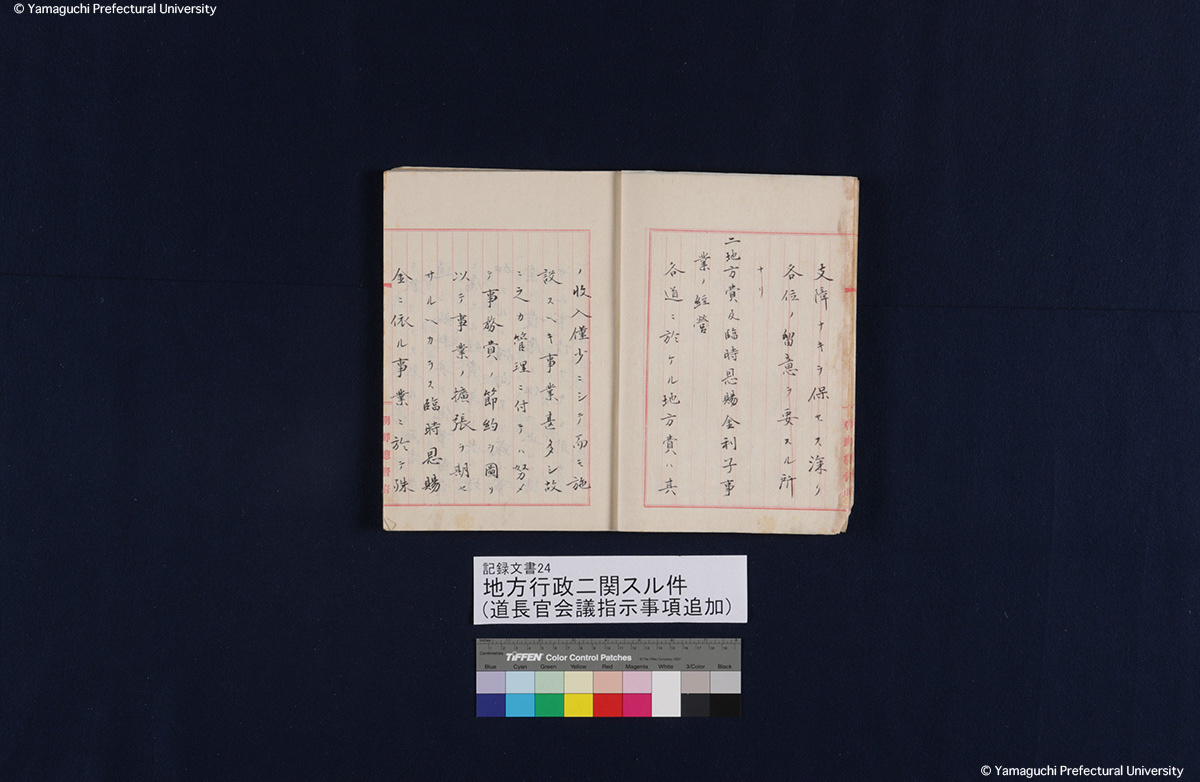 © Yamaguchi Prefectural University
支障ナキヲ保セス深ク
各位ノ留意ヲ要スル所
ナリ
二地方費及臨時恩賜金利子事
業ノ経営
各道ニ於ケル地方費ハ其
ノ收入僅少ニシテ而モ施
設スヘキ事業甚多シ故
ニ之カ管理ニ付テハ努メ
テ事務費ノ節約ヲ圖リ
以テ事業ノ擴張ヲ期セ
サルヘカラス臨時恩賜
金ニ依ル事業ニ於テ殊
朝鮮總督府
記録文書24
地方行政ニ関スル件
(道長官会議指示事項追加)
Centimetres
TIFFEN Color Control Patches
Blue Cyan Green Yellow Red Magenta White 3/Color Black
© Yamaguchi Prefectural University